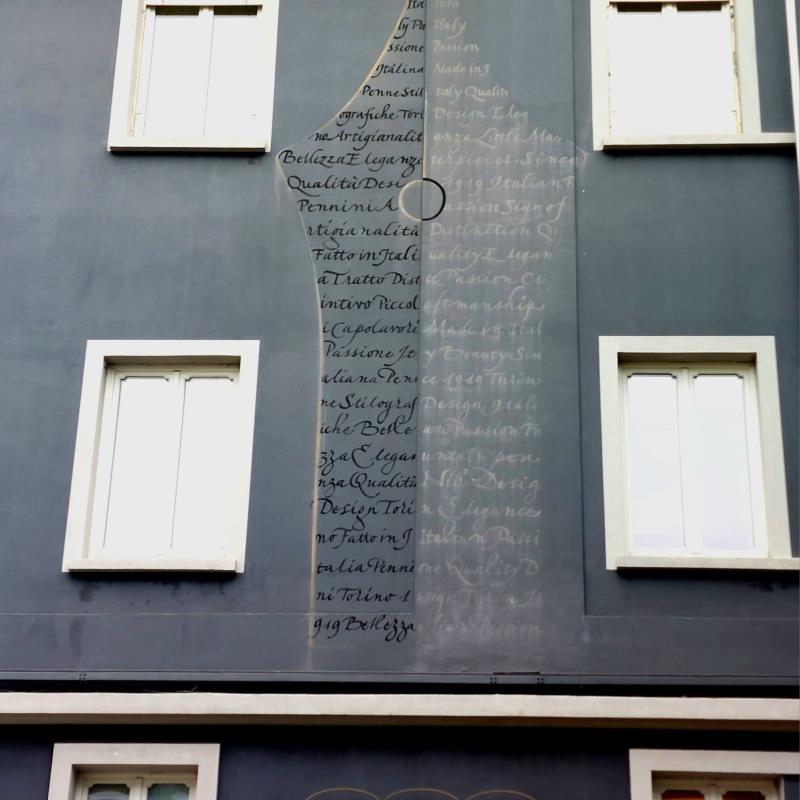 Ita Turin
ly Pe Italy
ssione Passion
Italina Made in I
Penne Stil taly Qualit
ografiche Tori Design Eleg
no Artigianalit anza Little Ma
Bellezza Eleganza terpieces Since
Qualità Desi 1919 Italian P
Pennini A assion Sign of
rtigianalità Distinction Q
Fatto in Itali uality Elegan
a Tratto Dist ce Passion Cr
intivo Piccol aftmanship
i Capolavori Made in Ital
Passione It y Beauty Sin
aliana Pen ce 1919 Turin
ne Stilograf Design Itali
iche Belle an Passion Fo
zza Elegan untain pen
nza Qualità Nib Desig
Design Tori n Elegance
no Fatto in I Italian Passi
talia Penni one Quality D
ni Torino 1 esign Turin It
919 Bellezza alian Passion